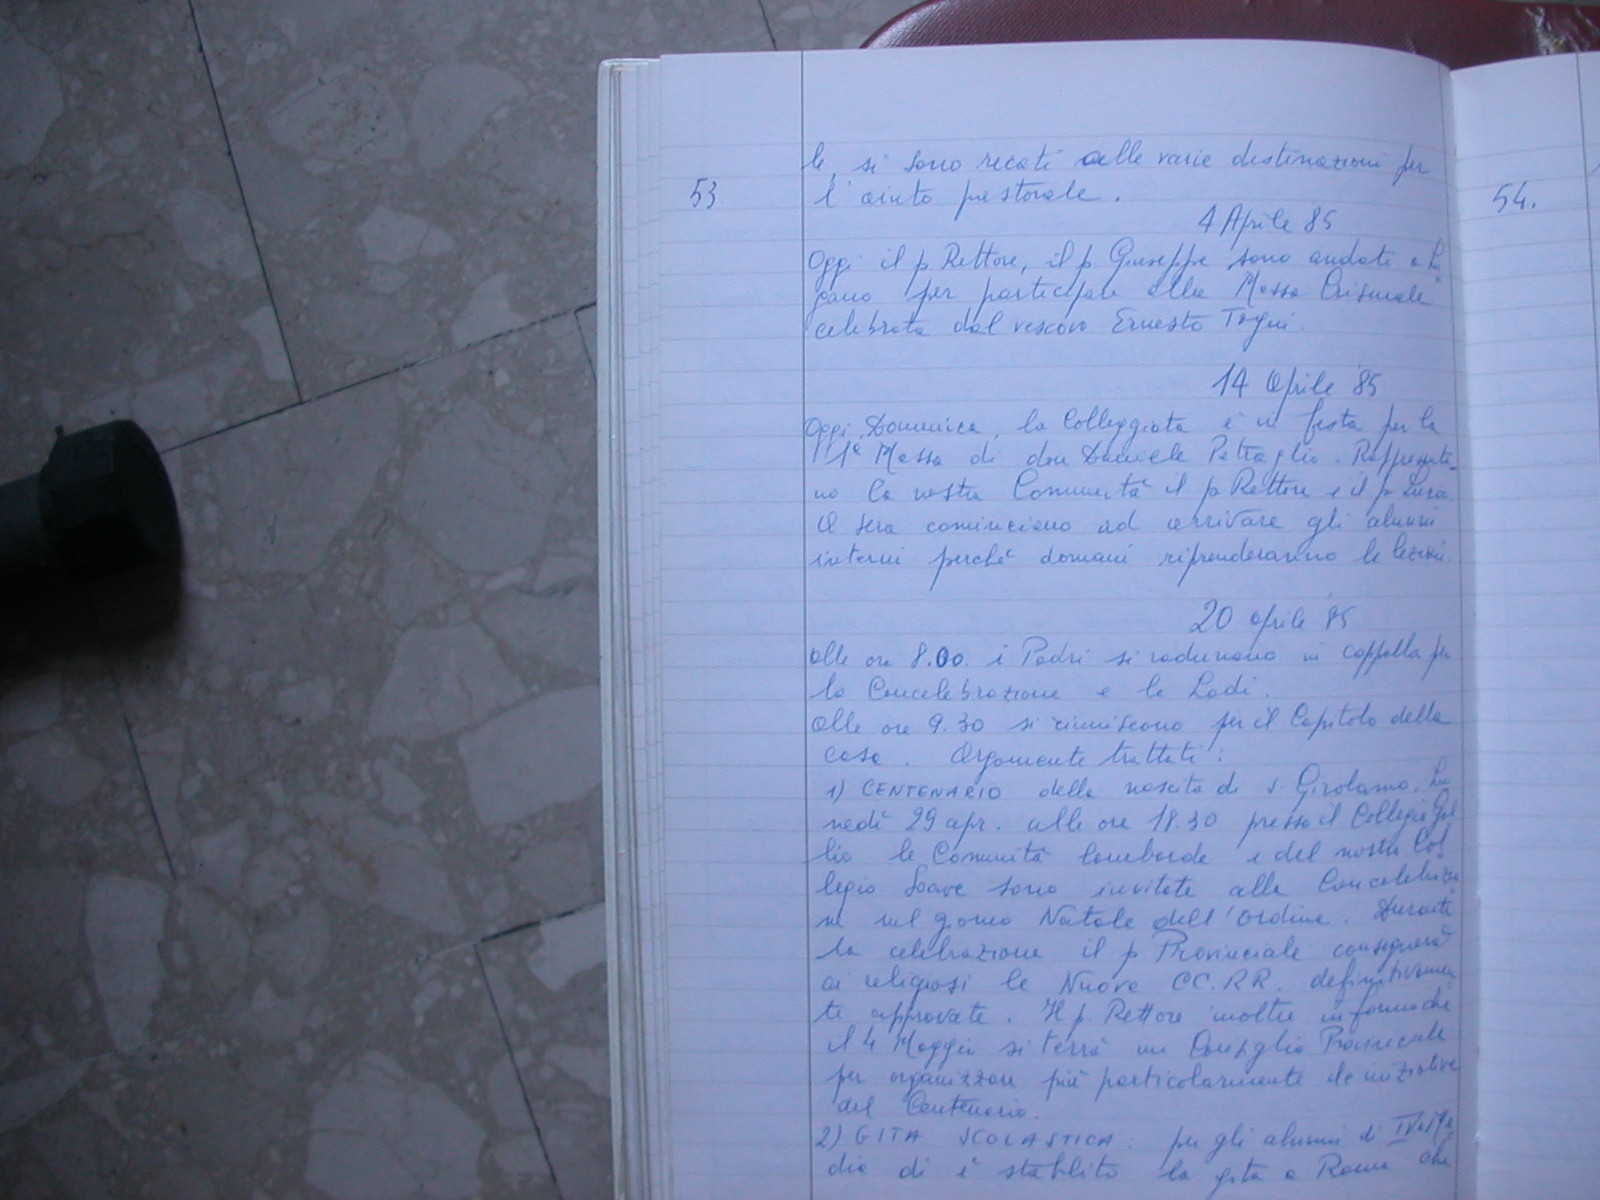 53
le, si sono recati alle varie destinazioni per
l'aiuto pastorale.
4 Aprile 85
Oggi il p. Rettore, il p. Giuseppe sono andati a Lu
gano per partecipare alla Messa Crismale
celebrata dal vescovo Ernesto Togni.
14 Aprile '85
Oggi, Domenica, la Colleggiata è in festa per la
1ª Messa di don Daniele Petraglio. Rappresenta_
no la nostra Comunità il p. Rettore e il p. Luca.
A sera cominciano ad arrivare gli alunni
interni perchè domani riprenderanno le lezioni.
20 aprile '85
Alle ore 8.00. i Padri si radunano in cappella per
la Concelebrazione e le Lodi.
Alle ore 9.30 si riuniscono per il Capitolo della
casa. Argomente trattati:
1) CENTENARIO della nascita di S. Girolamo. Lu
nedì 29 apr. alle ore 18.30 presso il Collegio Gal
lio le Comunità lombarde e del nostro Col
legio Soave sono invitate alla Concelebrazio
ne nel giorno Natale dell'Ordine. Durante
la celebrazione il p. Provinciale consegnerà
ai religiosi le Nuove CC.RR. definitivamen
te approvate. Il p. Rettore inoltre informa che
il 4 Maggio si terrà un Consiglio Provinciale
per organizzare più particolarmente le iniziative
del Centenario.
2) GITA SCOLASTICA: per gli alunni di IV
dia di è stablito la gita a Roma che
54.